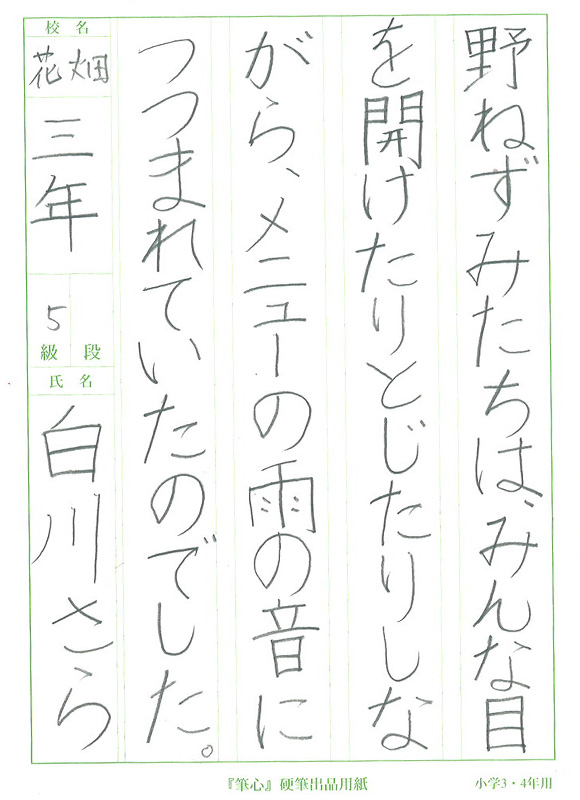 野ねずみたちは、みんな目
を開けたりとじたりしな
がら、メニューの雨の音に
つつまれていたのでした。
校名
花畑
三年
5
級 段
氏名
白川さら
『筆心』硬筆出品用紙
小学3・4年用